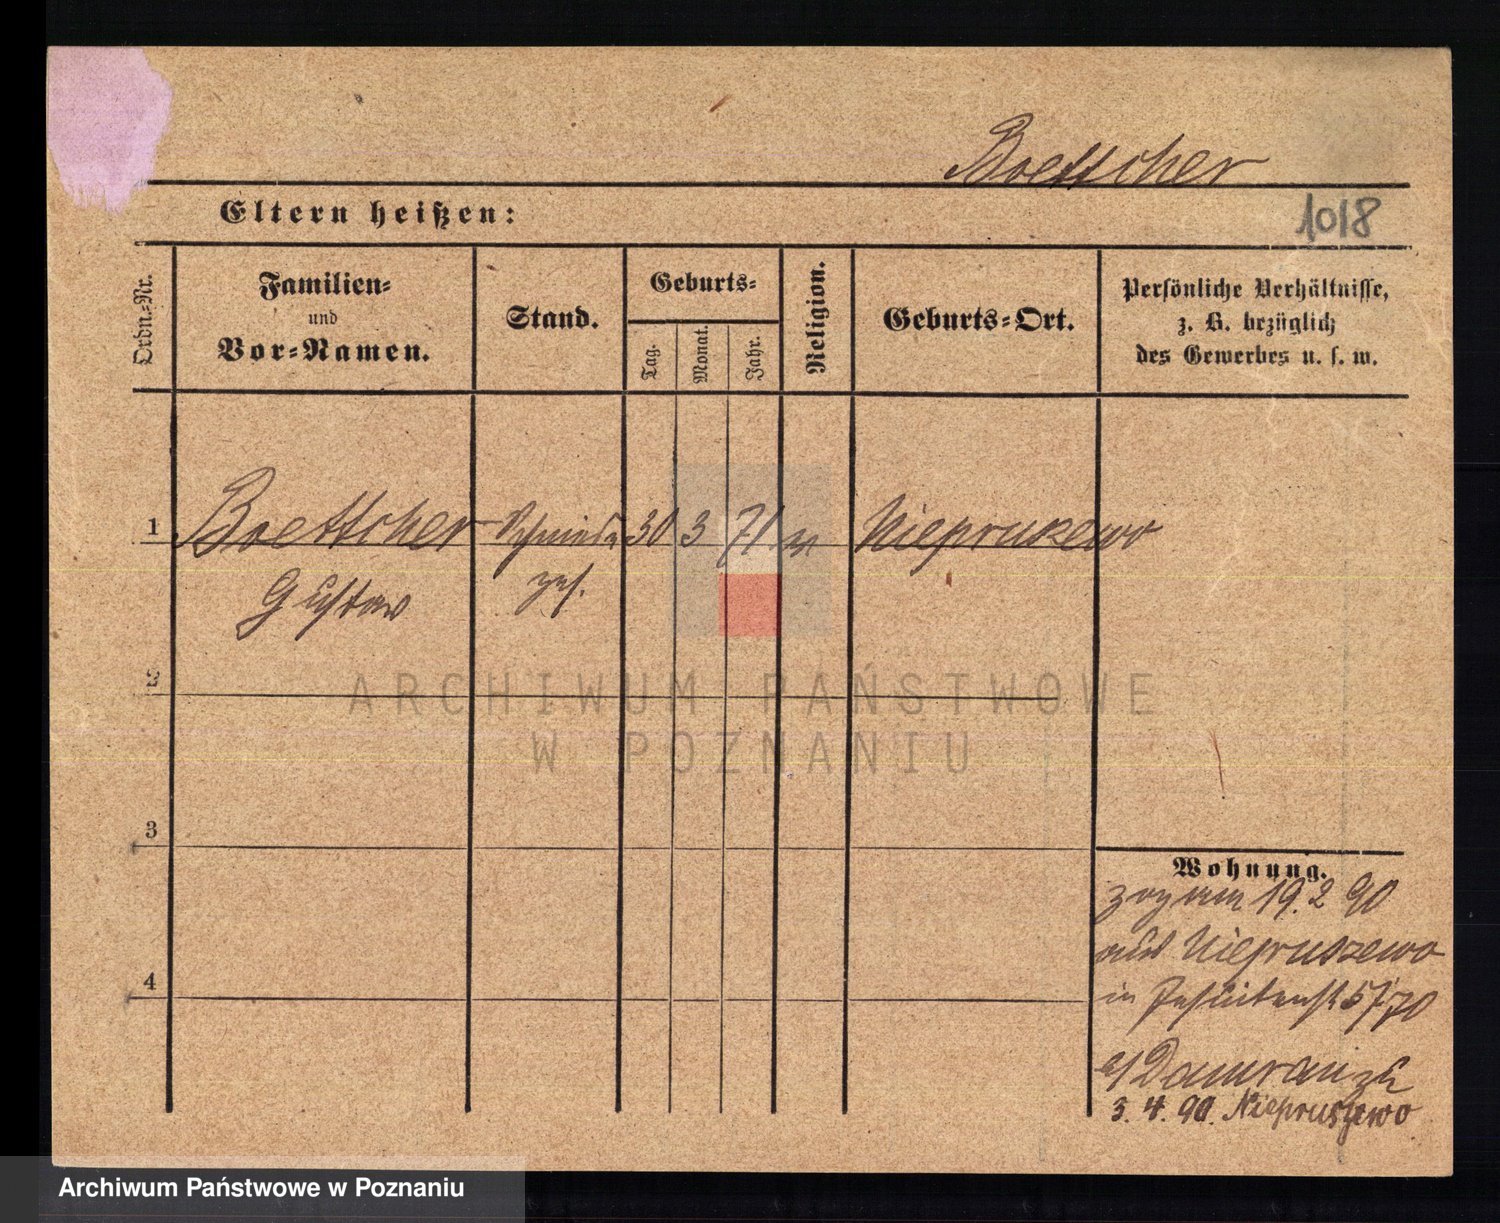 Boettcher
Eltern heißen:
1018
Ordn.-Nr.
Familien-
und
Vor-Namen.
Stand.
Geburts-
Tag.
Monat.
Jahr.
Religion.
Geburts-Ort.
Persönliche Verhältnisse,
z. B. bezüglich
des Gewerbes u. s. w.
1
Boettcher
Schmiede
30
3
71
Niepruszewo
Gustav
ges.
2
ARCHIWUM PAŃSTWOWE
W POZNANIU
3
Wohnung.
zog am 19. 2 90
aus Niepruszewo
in
4
zu
3. 4. 90. Niepruszewo
Archiwum Państwowe w Poznaniu